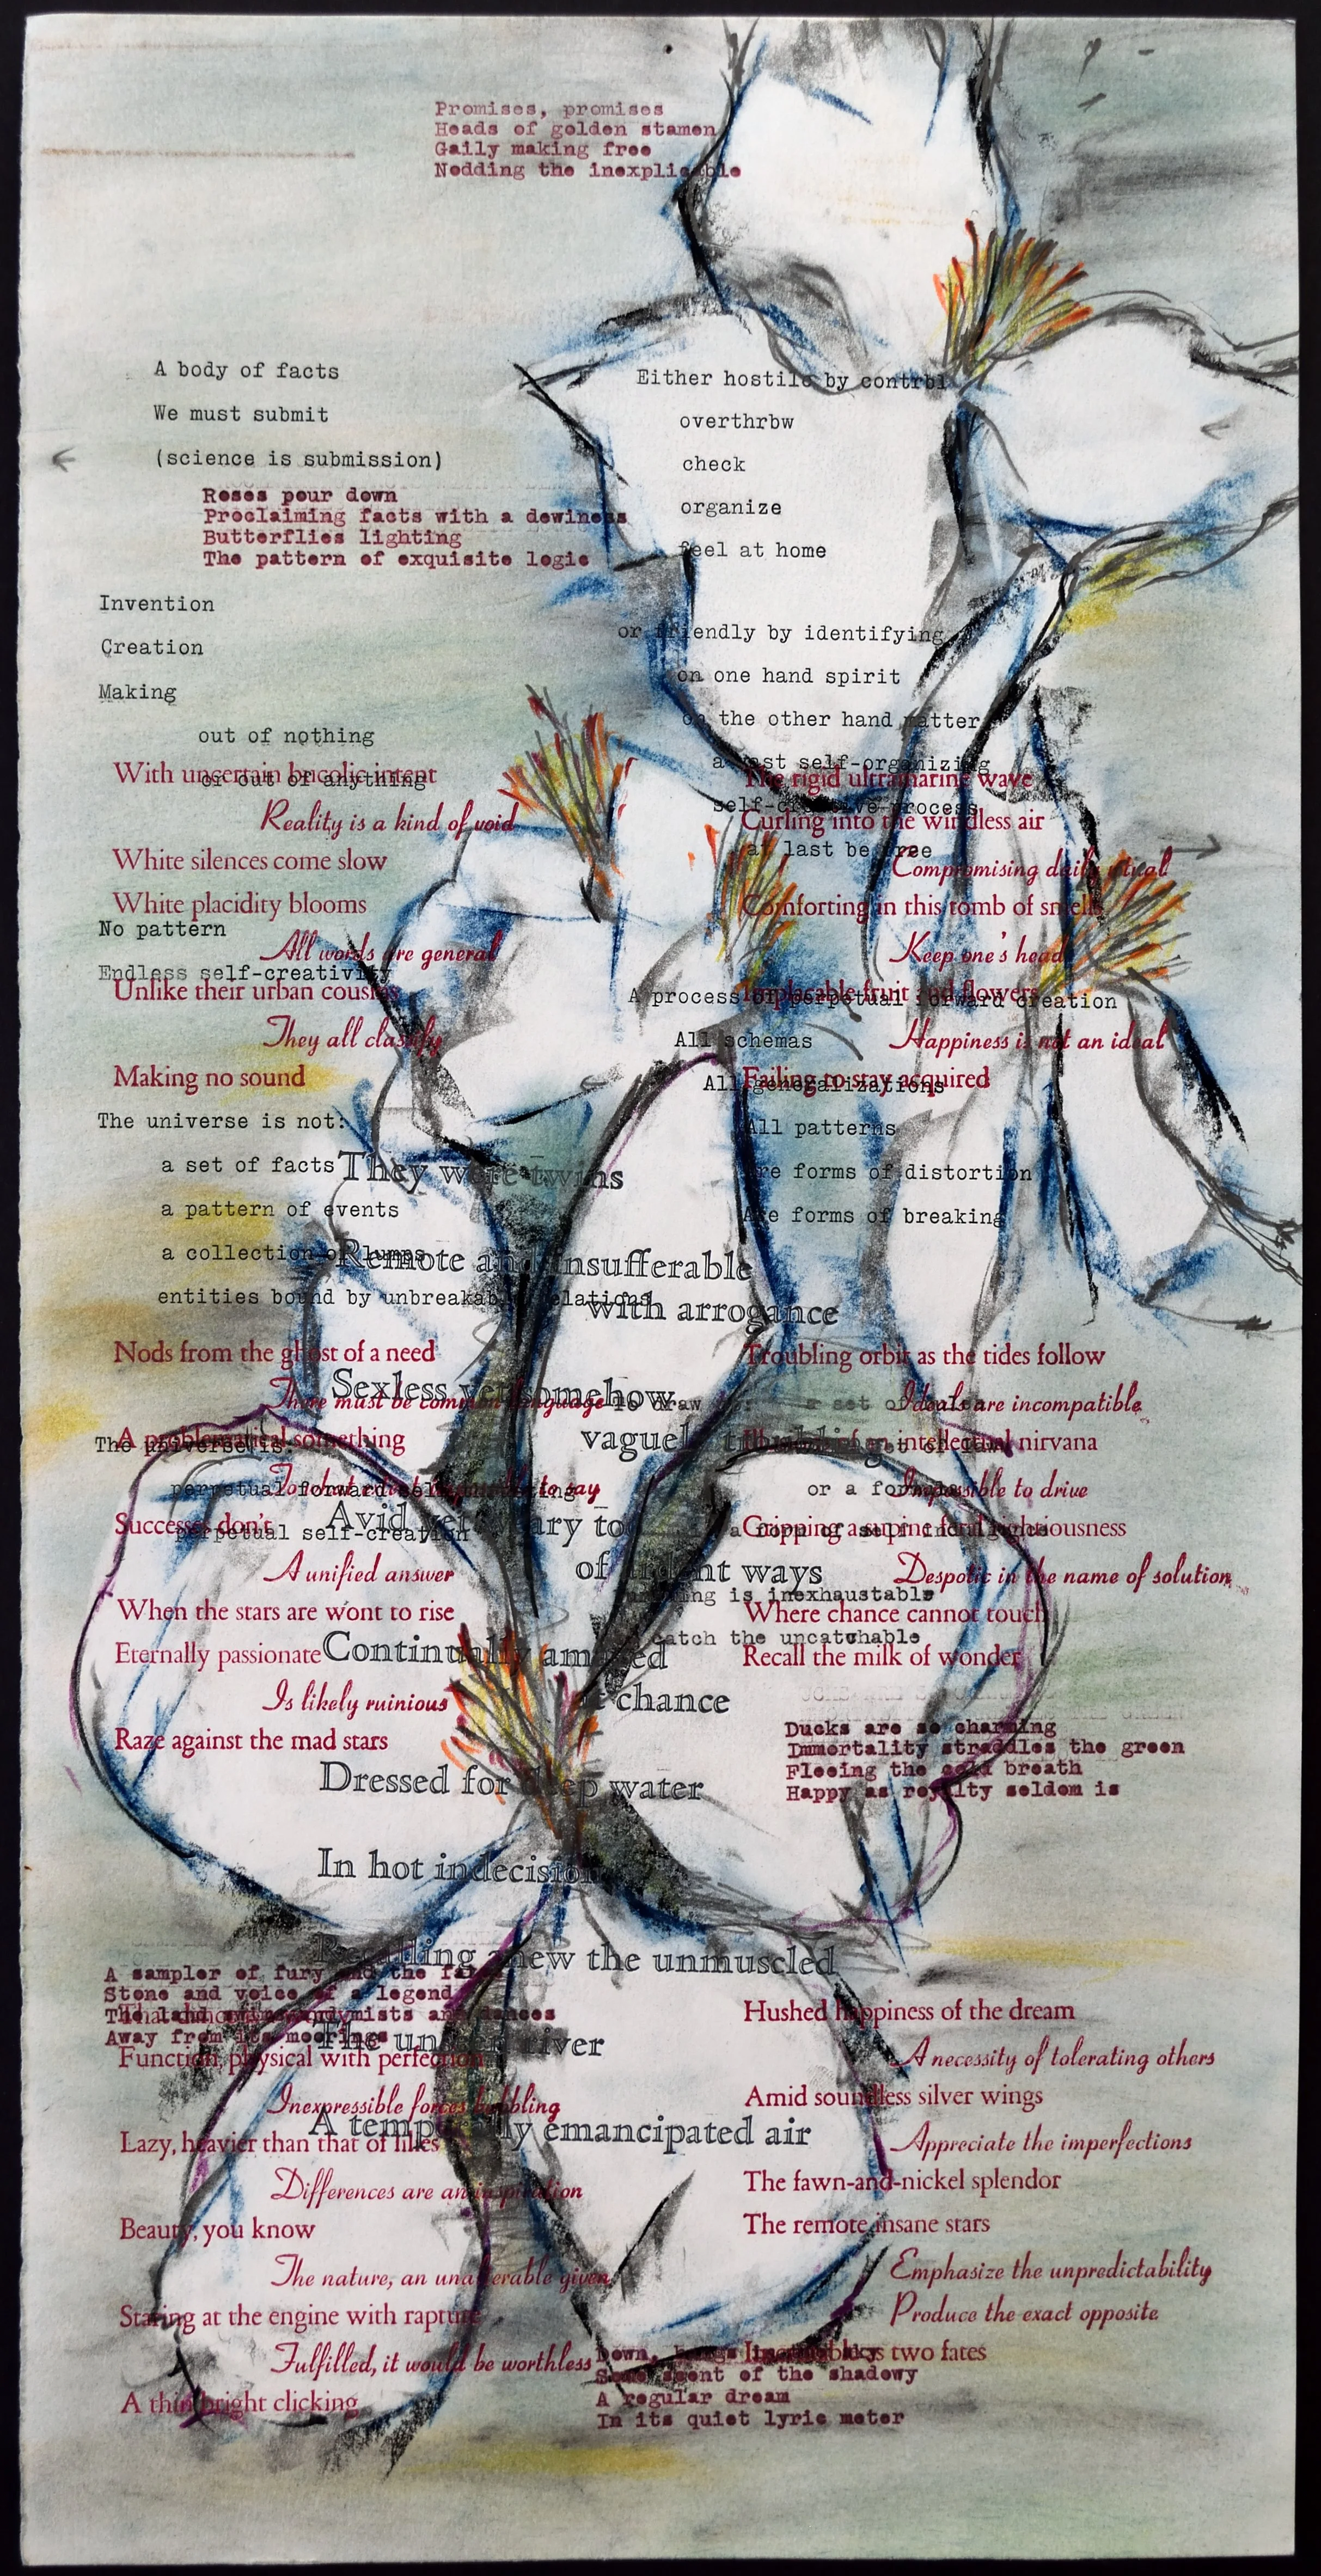 Promises, promises
Heads of golden stamen
Gaily making free
Nodding the inexplicable
A body of facts
We must submit
(science is submission)
Roses pour down
Proclaiming facts with a dewiness
Butterflies lighting
The pattern of exquisite logic
Either hostile by contrbl
overthrbw
check
organize
feel at home
or friendly by identifying
on one hand spirit
on the other hand matter
a vast self-organizing
self-creative process
at last be free
Invention
Creation
Making
out of nothing
or out of anything
With uncertain bucolic intent
Reality is a kind of void
White silences come slow
White placidity blooms
No pattern
All words are general
Endless self-creativity
Unlike their urban cousins
They all classify
Making no sound
The rigid ultramarine wave
Curling into the windless air
Compromising daily ritual
Comforting in this tomb of smells
Keep one's head
Implacable fruit and flowers
A process of perpetual forward creation
All schemas
Happiness is not an ideal
Failing to stay acquired
All generalizations
All patterns
Are forms of distortion
Are forms of breaking
The universe is not:
a set of facts
a pattern of events
a collection of lumps
entities bound by unbreakable relations
They were twins
Remote and insufferable
with arrogance
Sexless yet somehow
vaguely
Avid
of ways
Continually amazed
at chance
Dressed for deep water
In hot indecision
Recalling anew the unmuscled
The river
A emancipated air
Nods from the ghost of a need
There must be common language
A problematical something
The universe is:
perpetual forward
perpetual self-creation
to say
Successes don't
A unified answer
When the stars are wont to rise
Eternally passionate
Is likely ruinious
Raze against the mad stars
Troubling orbit as the tides follow
To draw
a set of
Ideals are incompatible
intellectual nirvana
or a
Impossible to drive
Gripping a supine
Despotic in the name of solution
is inexhaustable
Where chance cannot touch
catch the uncatchable
Recall the milk of wonder
Ducks are so charming
Immortality straddles the green
Fleeing the breath
Happy as royalty seldom is
A sampler of fury and the
Stone and voice of a legend
The land and dances
Away from its moorings
Function, physical with perfection
Inexpressible forces bubbling
Lazy, heavier than that of lilies
Differences are an inspiration
Beauty, you know
The nature, an unalterable given
Staring at the engine with rapture
Fulfilled, it would be worthless
A thin bright clicking
Hushed happiness of the dream
A necessity of tolerating others
Amid soundless silver wings
Appreciate the imperfections
The fawn-and-nickel splendor
The remote insane stars
Emphasize the unpredictability
Produce the exact opposite
two fates
Down,
Some scent of the shadowy
A regular dream
In its quiet lyric meter